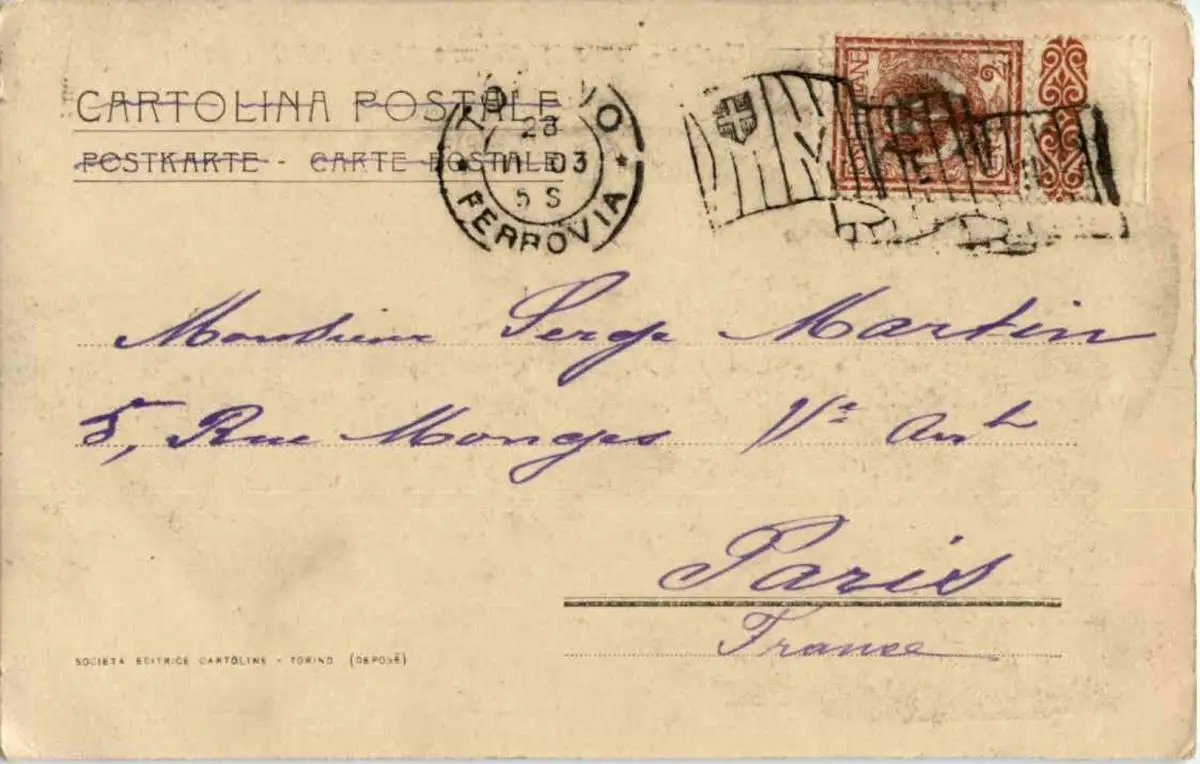 CARTOLINA POSTALE
POSTKARTE - CARTE POSTALE
TO NO
28
11 03
5 S
* FERROVIA *
Monsieur Serge Martin
5, Rue Monges Ve Arrt
Paris
France
SOCIETA EDITRICE CARTOLINE - TORINO (DEPOSÉ)